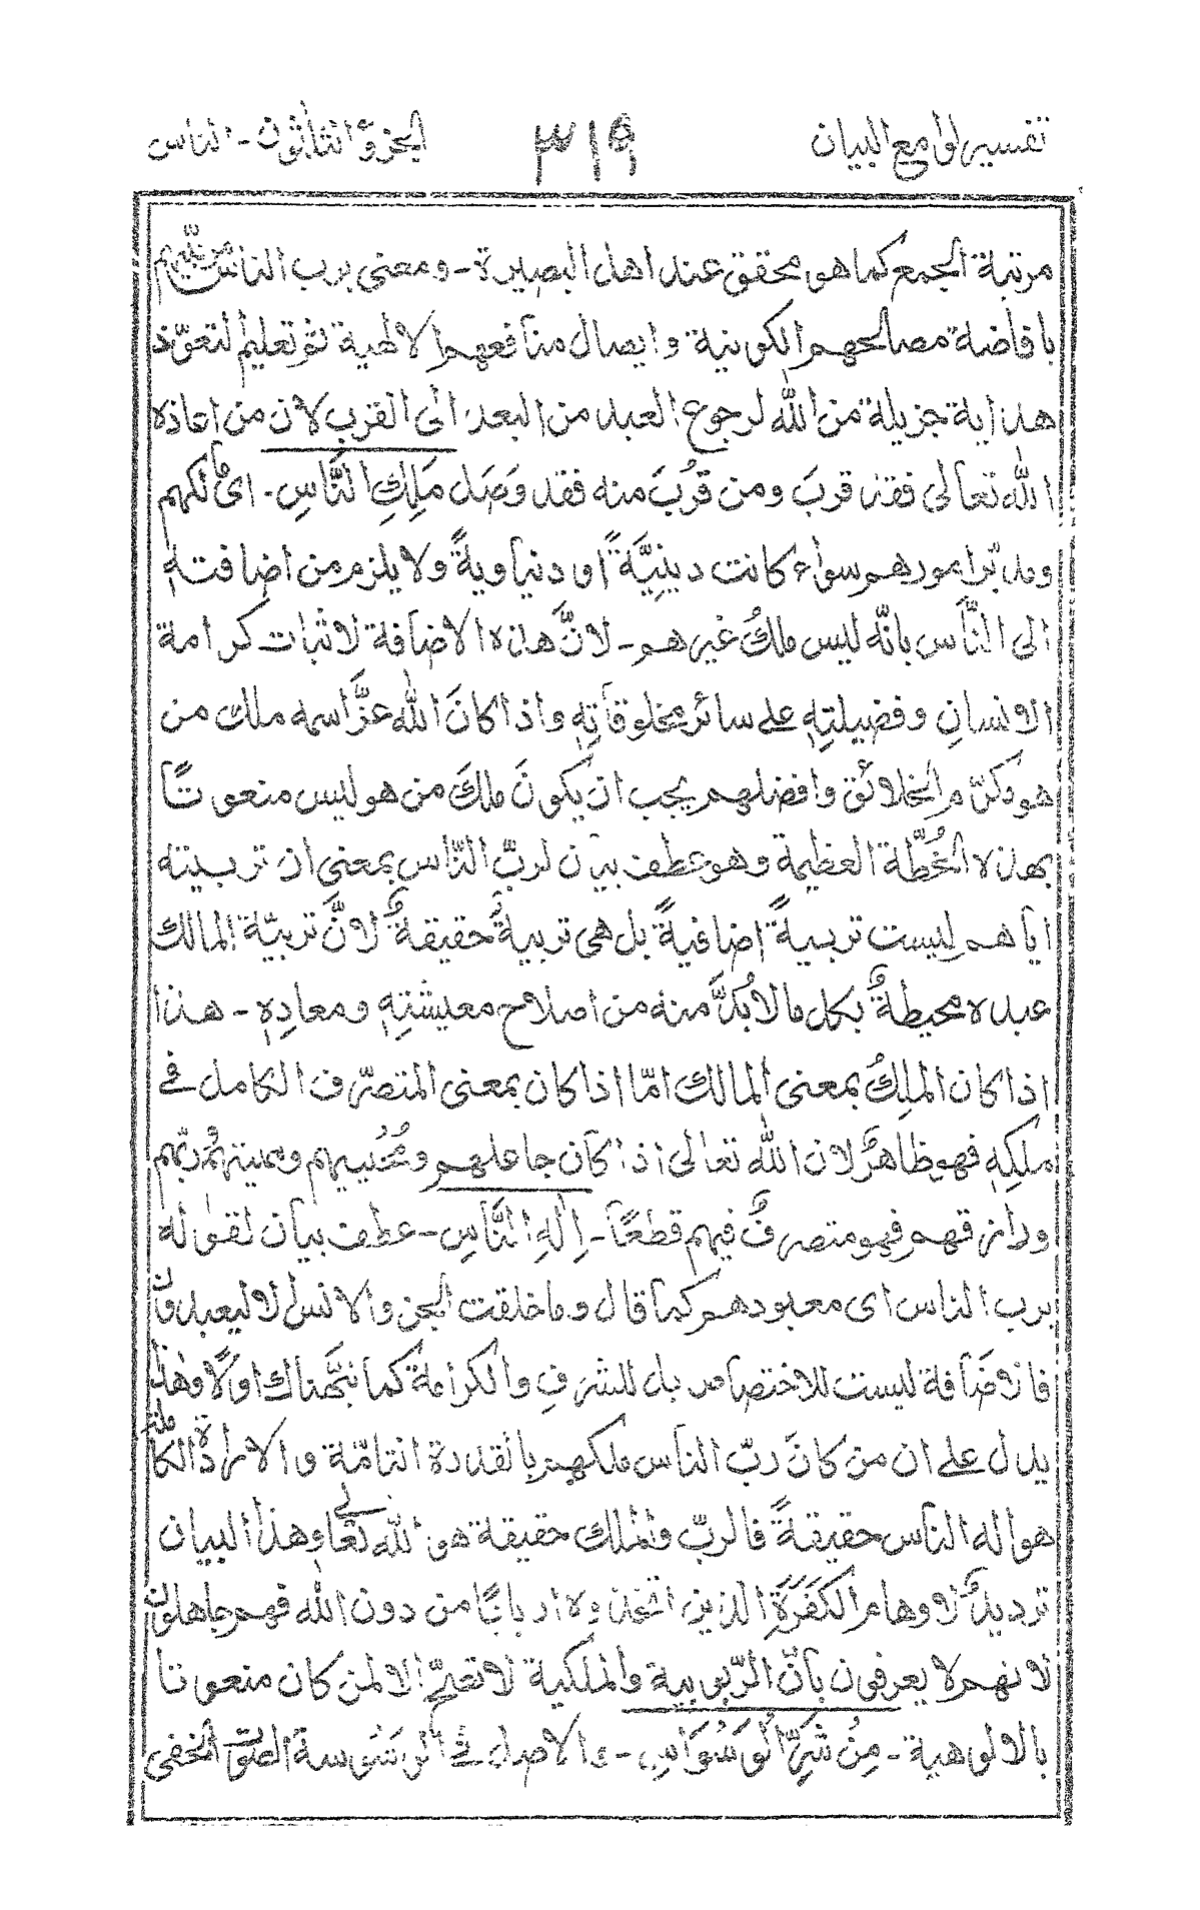 تفسير لوامع البيان ٣١٩ الجزؤ الثلثون - الناس
مرتبة الجمع كما هو محقق عند اهل البصيرة - ومعنى برب الناس مربّيهم
بافاضة مصالحهم الكونية وايصال منافعهم الالٰهية ثمّ تعليم التعوّذ
هداية جزيلة من الله لرجوع العبد من البعد الى القرب لان من اعاذه
الله تعالى فقد قربَ ومن قرُبَ منه فقد وَصَل مَلِكِ النَّاسِ - اى مالكهم
ومدبّر امورهم سواء كانت دينِيَّةً او دنياويةً ولا يلزم من اضافته
الى النَّاس بانّه ليس ملكُ غيرهم - لانَّ هذه الاضافة لاثبات كرامة
الانسانِ وفضيلتِهٖ على سائر مخلوقاتِهٖ واذا كانَ الله عزَّاسمه ملك من
هو مكرّم الخلائق وافضلهم يجب ان يكونَ ملكَ من هو ليس منعوتًا
بهذه الخُطّة العظيمة وهو عطف بيان لربّ النّاس بمعنى ان تربيته
اياهم ليست تربيةً اضافيةً بل هى تربيةٌ حقيقةٌ لانَّ تربيّة المالك
عبده محيطةٌ بكل مالابُدَّ منه من اصلاح معيشتِهٖ ومعادِهٖ - هذا
اذا كان الملِكُ بمعنى المالك امّا اذا كان بمعنى المتصرّف الكامل فى
ملكِهٖ فهو ظاهرٌ لان الله تعالى اذا كان جاعلهم ومُحْييهم ومميتهم وربّهم
ورازقهم فهو متصرفٌ فيهم قطعًا - اِلٰهِ النَّاسِ - عطف بيان لقوله
برب الناس اى معبودهم كما قال وما خلقت الجن والانس الا ليعبدون
فالاضافة ليست للاختصاص بل للشرفِ والكرامة كما نبّهناك اوّلًا وهذا
يدل على ان من كانَ ربّ الناس ملكهم بالقدرة التامّة والارادة الكاملة
هو اله الناس حقيقةً فالربّ والملك حقيقة هو الله تعالى وهذا البيان
ترديدٌ لاوهام الكَفَرَةِ الذين اتخذوه اربابًا من دون الله فهم جاهلون
لانهم لا يعرفون بانّ الرّبوبية والملكية لا تصلح الا لمن كان منعوتا
بالالوهية - مِنْ شَرِّ الْوَسْوَاسِ - والاصل فى الوسوسة الصّوت الخفى